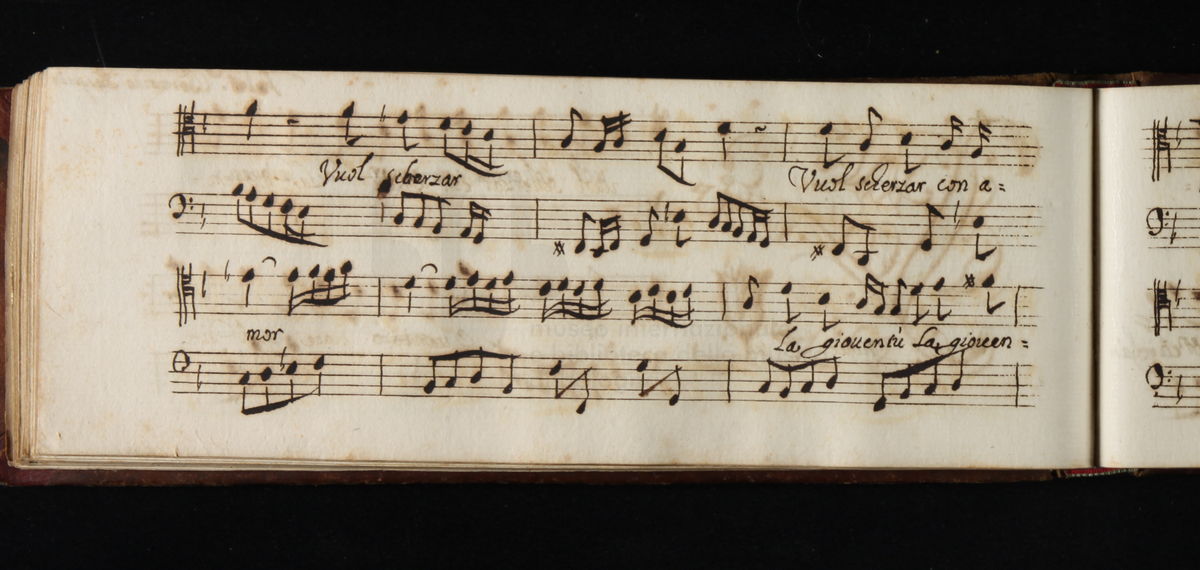 Vuol scherzar Vuol scherzar con a=
mor la giouentù la giouen=